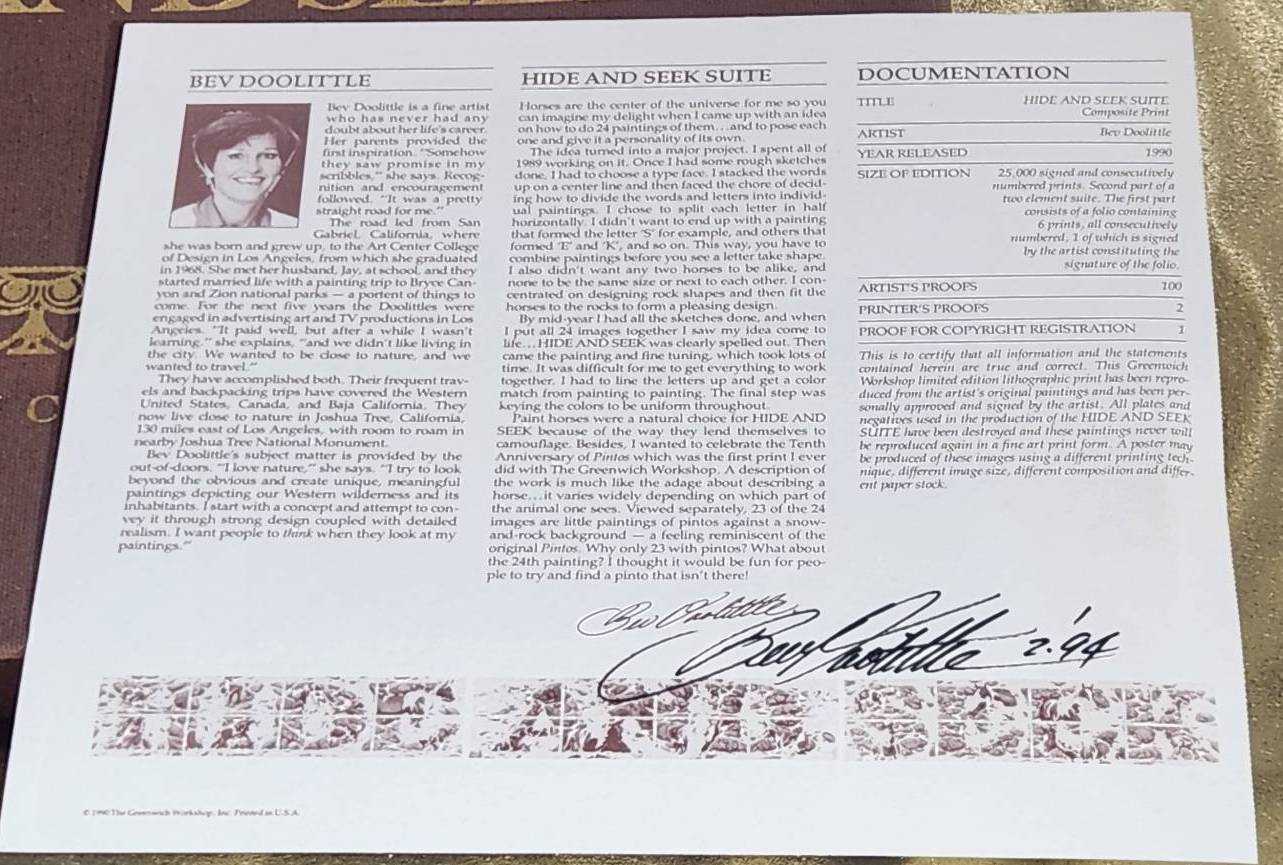 AND SEE
C
BEV DOOLITTLE
Bev Doolittle is a fine artist
who has never had any
doubt about her life's career.
Her parents provided the
first inspiration. "Somehow
they saw promise in my
scribbles," she says. Recog-
nition and encouragement
followed. "It was a pretty
straight road for me."
The road led from San
Gabriel, California, where
she was born and grew up, to the Art Center College
of Design in Los Angeles, from which she graduated
in 1968. She met her husband, Jay, at school, and they
started married life with a painting trip to Bryce Can-
yon and Zion national parks — a portent of things to
come. For the next five years the Doolittles were
engaged in advertising art and TV productions in Los
Angeles. "It paid well, but after a while I wasn't
learning," she explains, "and we didn't like living in
the city. We wanted to be close to nature, and we
wanted to travel."
They have accomplished both. Their frequent trav-
els and backpacking trips have covered the Western
United States, Canada, and Baja California. They
now live close to nature in Joshua Tree, California,
130 miles east of Los Angeles, with room to roam in
nearby Joshua Tree National Monument.
Bev Doolittle's subject matter is provided by the
out-of-doors. "I love nature," she says. "I try to look
beyond the obvious and create unique, meaningful
paintings depicting our Western wilderness and its
inhabitants. I start with a concept and attempt to con-
vey it through strong design coupled with detailed
realism. I want people to think when they look at my
paintings."
HIDE AND SEEK SUITE
Horses are the center of the universe for me so you
can imagine my delight when I came up with an idea
on how to do 24 paintings of them...and to pose each
one and give it a personality of its own.
The idea turned into a major project. I spent all of
1989 working on it. Once I had some rough sketches
done, I had to choose a type face. I stacked the words
up on a center line and then faced the chore of decid-
ing how to divide the words and letters into individ-
ual paintings. I chose to split each letter in half
horizontally. I didn't want to end up with a painting
that formed the letter 'S' for example, and others that
formed 'E' and 'K', and so on. This way, you have to
combine paintings before you see a letter take shape.
I also didn't want any two horses to be alike, and
none to be the same size or next to each other. I con-
centrated on designing rock shapes and then fit the
horses to the rocks to form a pleasing design.
By mid-year I had all the sketches done, and when
I put all 24 images together I saw my idea come to
life...HIDE AND SEEK was clearly spelled out. Then
came the painting and fine tuning, which took lots of
time. It was difficult for me to get everything to work
together. I had to line the letters up and get a color
match from painting to painting. The final step was
keying the colors to be uniform throughout.
Paint horses were a natural choice for HIDE AND
SEEK because of the way they lend themselves to
camouflage. Besides, I wanted to celebrate the Tenth
Anniversary of Pintos which was the first print I ever
did with The Greenwich Workshop. A description of
the work is much like the adage about describing a
horse...it varies widely depending on which part of
the animal one sees. Viewed separately, 23 of the 24
images are little paintings of pintos against a snow-
and-rock background — a feeling reminiscent of the
original Pintos. Why only 23 with pintos? What about
the 24th painting? I thought it would be fun for peo-
ple to try and find a pinto that isn't there!
DOCUMENTATION
TITLE HIDE AND SEEK SUITE
Composite Print
ARTIST Bev Doolittle
YEAR RELEASED 1990
SIZE OF EDITION 25,000 signed and consecutively
numbered prints. Second part of a
two element suite. The first part
consists of a folio containing
6 prints, all consecutively
numbered, 1 of which is signed
by the artist constituting the
signature of the folio.
ARTIST'S PROOFS 100
PRINTER'S PROOFS 2
PROOF FOR COPYRIGHT REGISTRATION 1
This is to certify that all information and the statements
contained herein are true and correct. This Greenwich
Workshop limited edition lithographic print has been repro-
duced from the artist's original paintings and has been per-
sonally approved and signed by the artist. All plates and
negatives used in the production of the HIDE AND SEEK
SUITE have been destroyed and these paintings never will
be reproduced again in a fine art print form. A poster may
be produced of these images using a different printing tech-
nique, different image size, different composition and differ-
ent paper stock.
Bev Doolittle
Bev Doolittle 2.'94
HIDE AND SEEK
© 1990 The Greenwich Workshop, Inc. Printed in U.S.A.